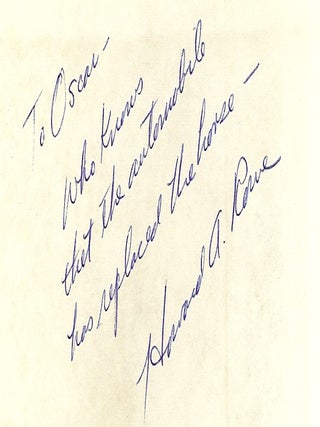 To Oscar -
Who knows
that the automobile
has replaced the horse -
Howard A. Rowe